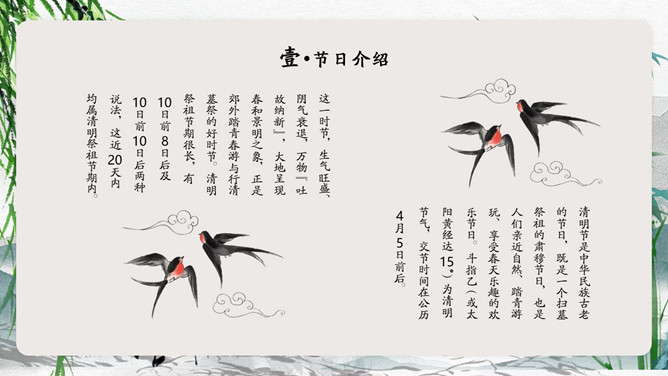 壹•节日介绍
清明节是中华民族古老
的节日，既是一个扫墓
祭祖的肃穆节日，也是
人们亲近自然、踏青游
玩、享受春天乐趣的欢
乐节日。斗指乙（或太
阳黄经达15°）为清明
节气，交节时间在公历
4月5日前后。
这一时节，生气旺盛、
阴气衰退，万物『吐
故纳新』，大地呈现
春和景明之象，正是
郊外踏青春游与行清
墓祭的好时节。清明
祭祖节期很长，有
10日前8日后及
10日前10日后两种
说法，这近20天内
均属清明祭祖节期内。